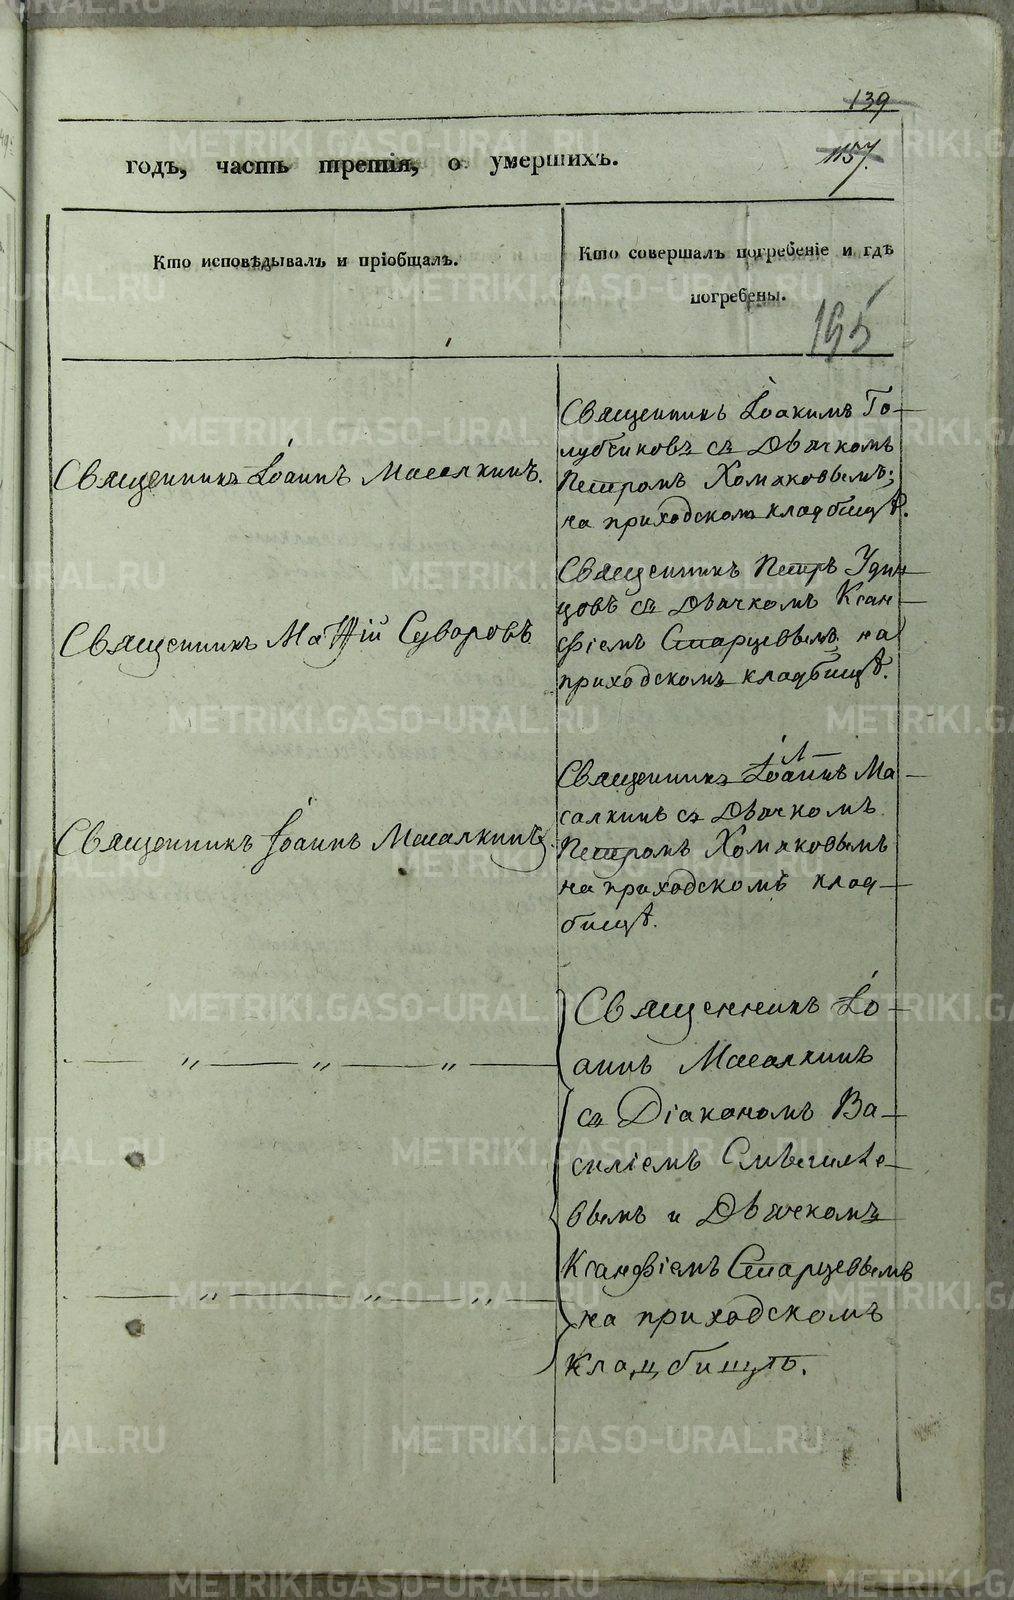 139
1157.
годъ, часть третія, о умершихъ.
Кто исповѣдывалъ и пріобщалъ.
Кто совершалъ погребеніе и гдѣ
погребены.
195
Священникъ Іоаннъ Масалкинъ.
Священникъ Іоакимъ Го-
лубчиковъ съ Дьячкомъ
Петромъ Хомяковымъ;
на приходскомъ кладбищѣ.
Священникъ Матѳій Суворовъ
Священникъ Петръ Удин-
цовъ съ Дьячкомъ Ксан-
ѳіемъ Старцевымъ на
приходскомъ кладбищѣ.
Священникъ Іоаннъ Масалкинъ.
Священникъ Іоаннъ Ма-
салкинъ съ Дьячкомъ
Петромъ Хомяковымъ
на приходскомъ клад-
бищѣ.
— „ — „ — „ —
Священникъ Іо-
аннъ Масалкинъ
съ Діакономъ Ва-
силіемъ
вымъ и Дьячкомъ
Ксанѳіемъ Старцевымъ
— „ — „ — „ —
на приходскомъ
кладбищѣ.
METRIKI.GASO-URAL.RU